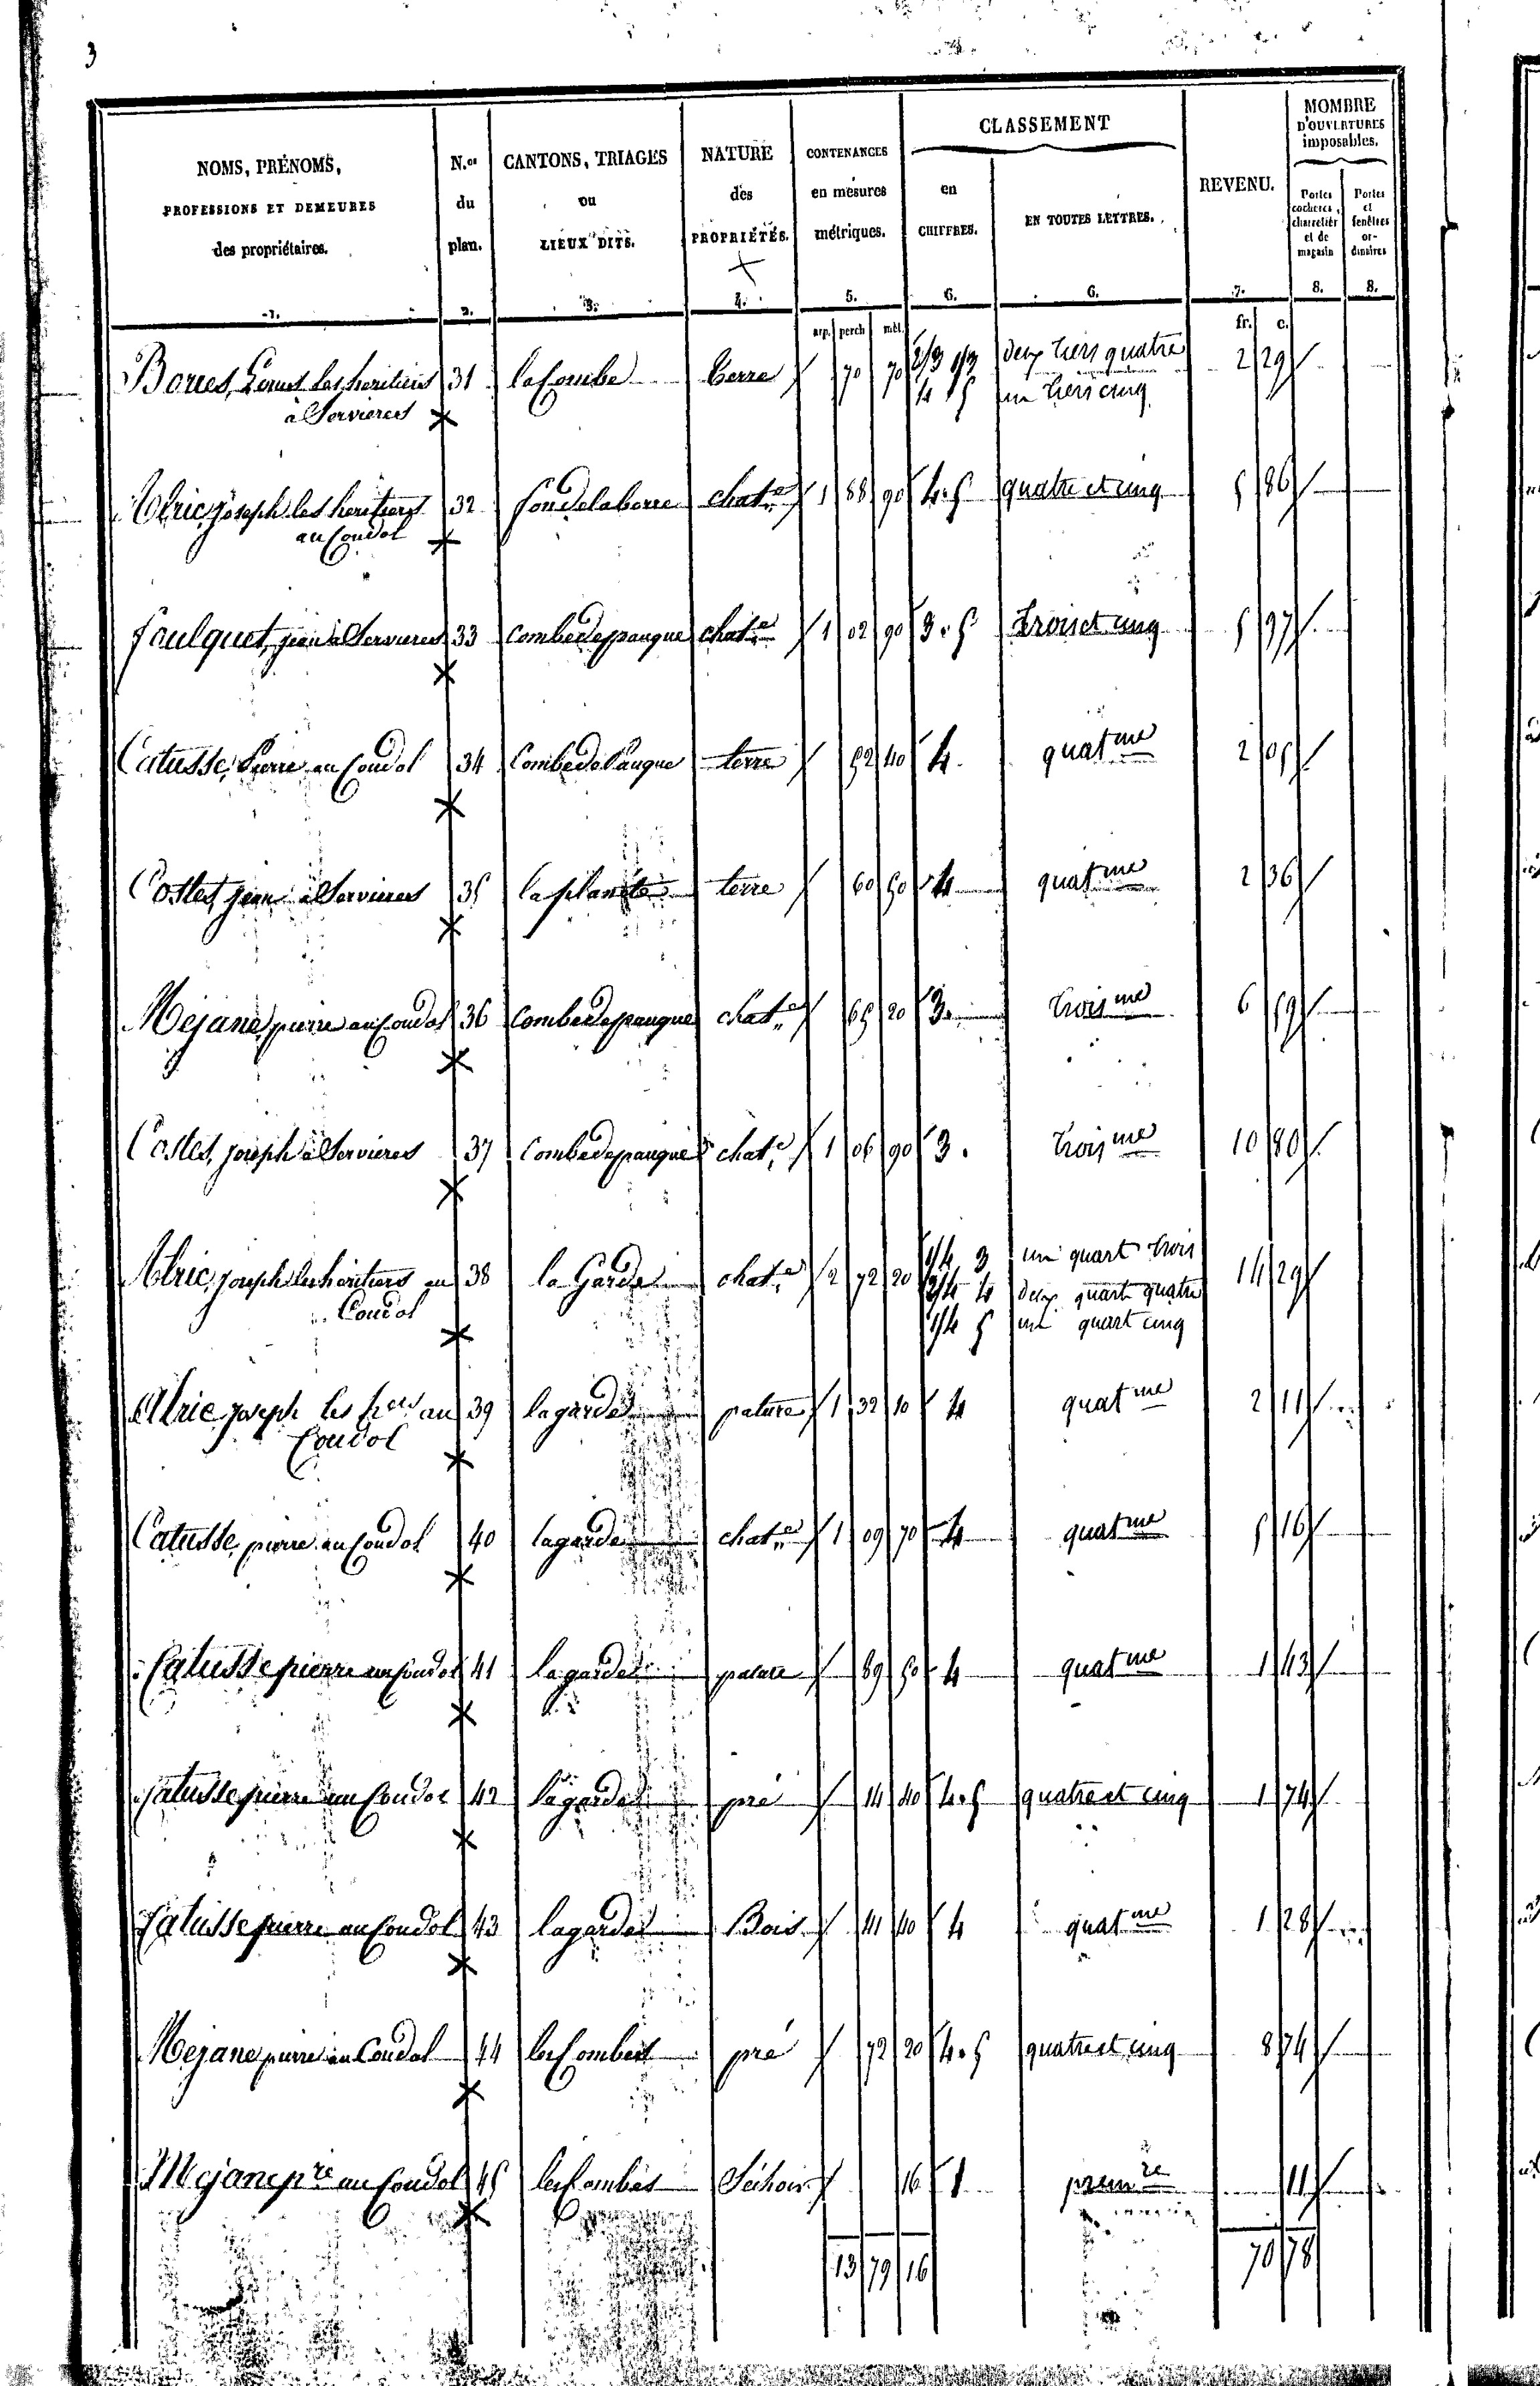 3
NOMS, PRÉNOMS, PROFESSIONS ET DEMEURES des propriétaires. | N.os du plan. | CANTONS, TRIAGES ou LIEUX DITS. | NATURE des PROPRIÉTÉS. | CONTENANCES en mesures métriques. | CLASSEMENT en CHIFFRES. | EN TOUTES LETTRES. | REVENU. | NOMBRE D'OUVERTURES imposables. Portes cochères, charretières et de magasin | Portes et fenêtres ordinaires
1. 2. 3. 4. 5. 6. 6. 7. 8. 8.
arp. perch. mèt. fr. c.
les heritiers 31 la Combe terre 70 70 2/3 1/3 deux tiers quatre 2 29
à Servieres 4 5 un tiers cinq
Alric, joseph les heritiers 32 chat.e 1 88 90 4.5 quatre et cinq 5 86
au Coudol
Foulquet, jean à Servieres 33 Combedepauque chat.e 1 02 90 3.5 trois et cinq 5 97
Catusse, Pierre au Coudol 34 Combede Pauque terre 52 40 4. quatme 2 05
Costes, jean à Servieres 35 la planete terre 60 50 4 quatme 2 36
Mejane, pierre au Coudol 36 Combedepauque chat.e 65 20 3. troisme 6 59
Costes, joseph à Servieres 37 Combedepauque chat.e 1 06 90 3. troisme 10 80
Alric, joseph les heritiers au 38 la Garde chat.e 2 72 20 1/4 3 un quart trois 14 29
Coudol 2/4 4 deux quarts quatre
1/4 5 un quart cinq
Alric joseph les hers au 39 lagarde pature 1 32 10 4 quatme 2 11
Coudol
Catusse, pierre au Coudol 40 lagarde chat.e 1 09 70 4 quatme 5 16
Catusse pierre au Coudol 41 lagarde pature 89 50 4 quatme 1 43
Catusse pierre au Coudol 42 lagarde pré 14 40 4.5 quatre et cinq 1 74
Catusse pierre au Coudol 43 lagarde Bois 41 40 4 quatme 1 28
Mejane pierre au Coudol 44 les Combes pré 72 20 4.5 quatre et cinq 8 74
Mejane pre au Coudol 45 les Combes Séchoir 16 1 premre 11
13 79 16 70 78